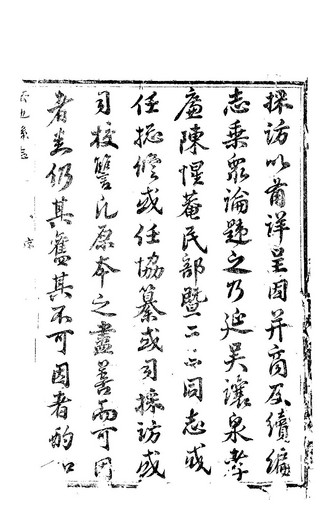 採訪以前詳呈因并商及續編
志乘眾論韙之乃延吳讓泉孝
廉陳惺菴民部暨二三同志或
任總修或任協纂或司採訪或
司校讐凡原本之盡善而可因
者悉仍其舊其不可因者酌加